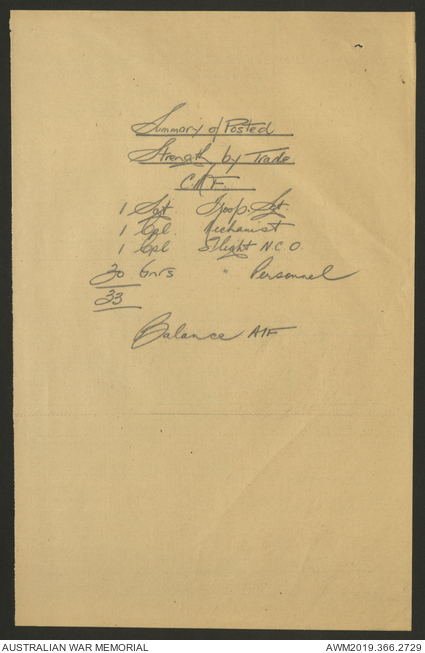 Summary of Posted
Strength by Trade
C.M.F.
1 Sgt. Troop. Sgt.
1 Cpl. Mechanist
1 Cpl S/light N.C.O.
30 Gnrs " Personnel
33
Balance AIF
AUSTRALIAN WAR MEMORIAL
AWM2019.366.2729